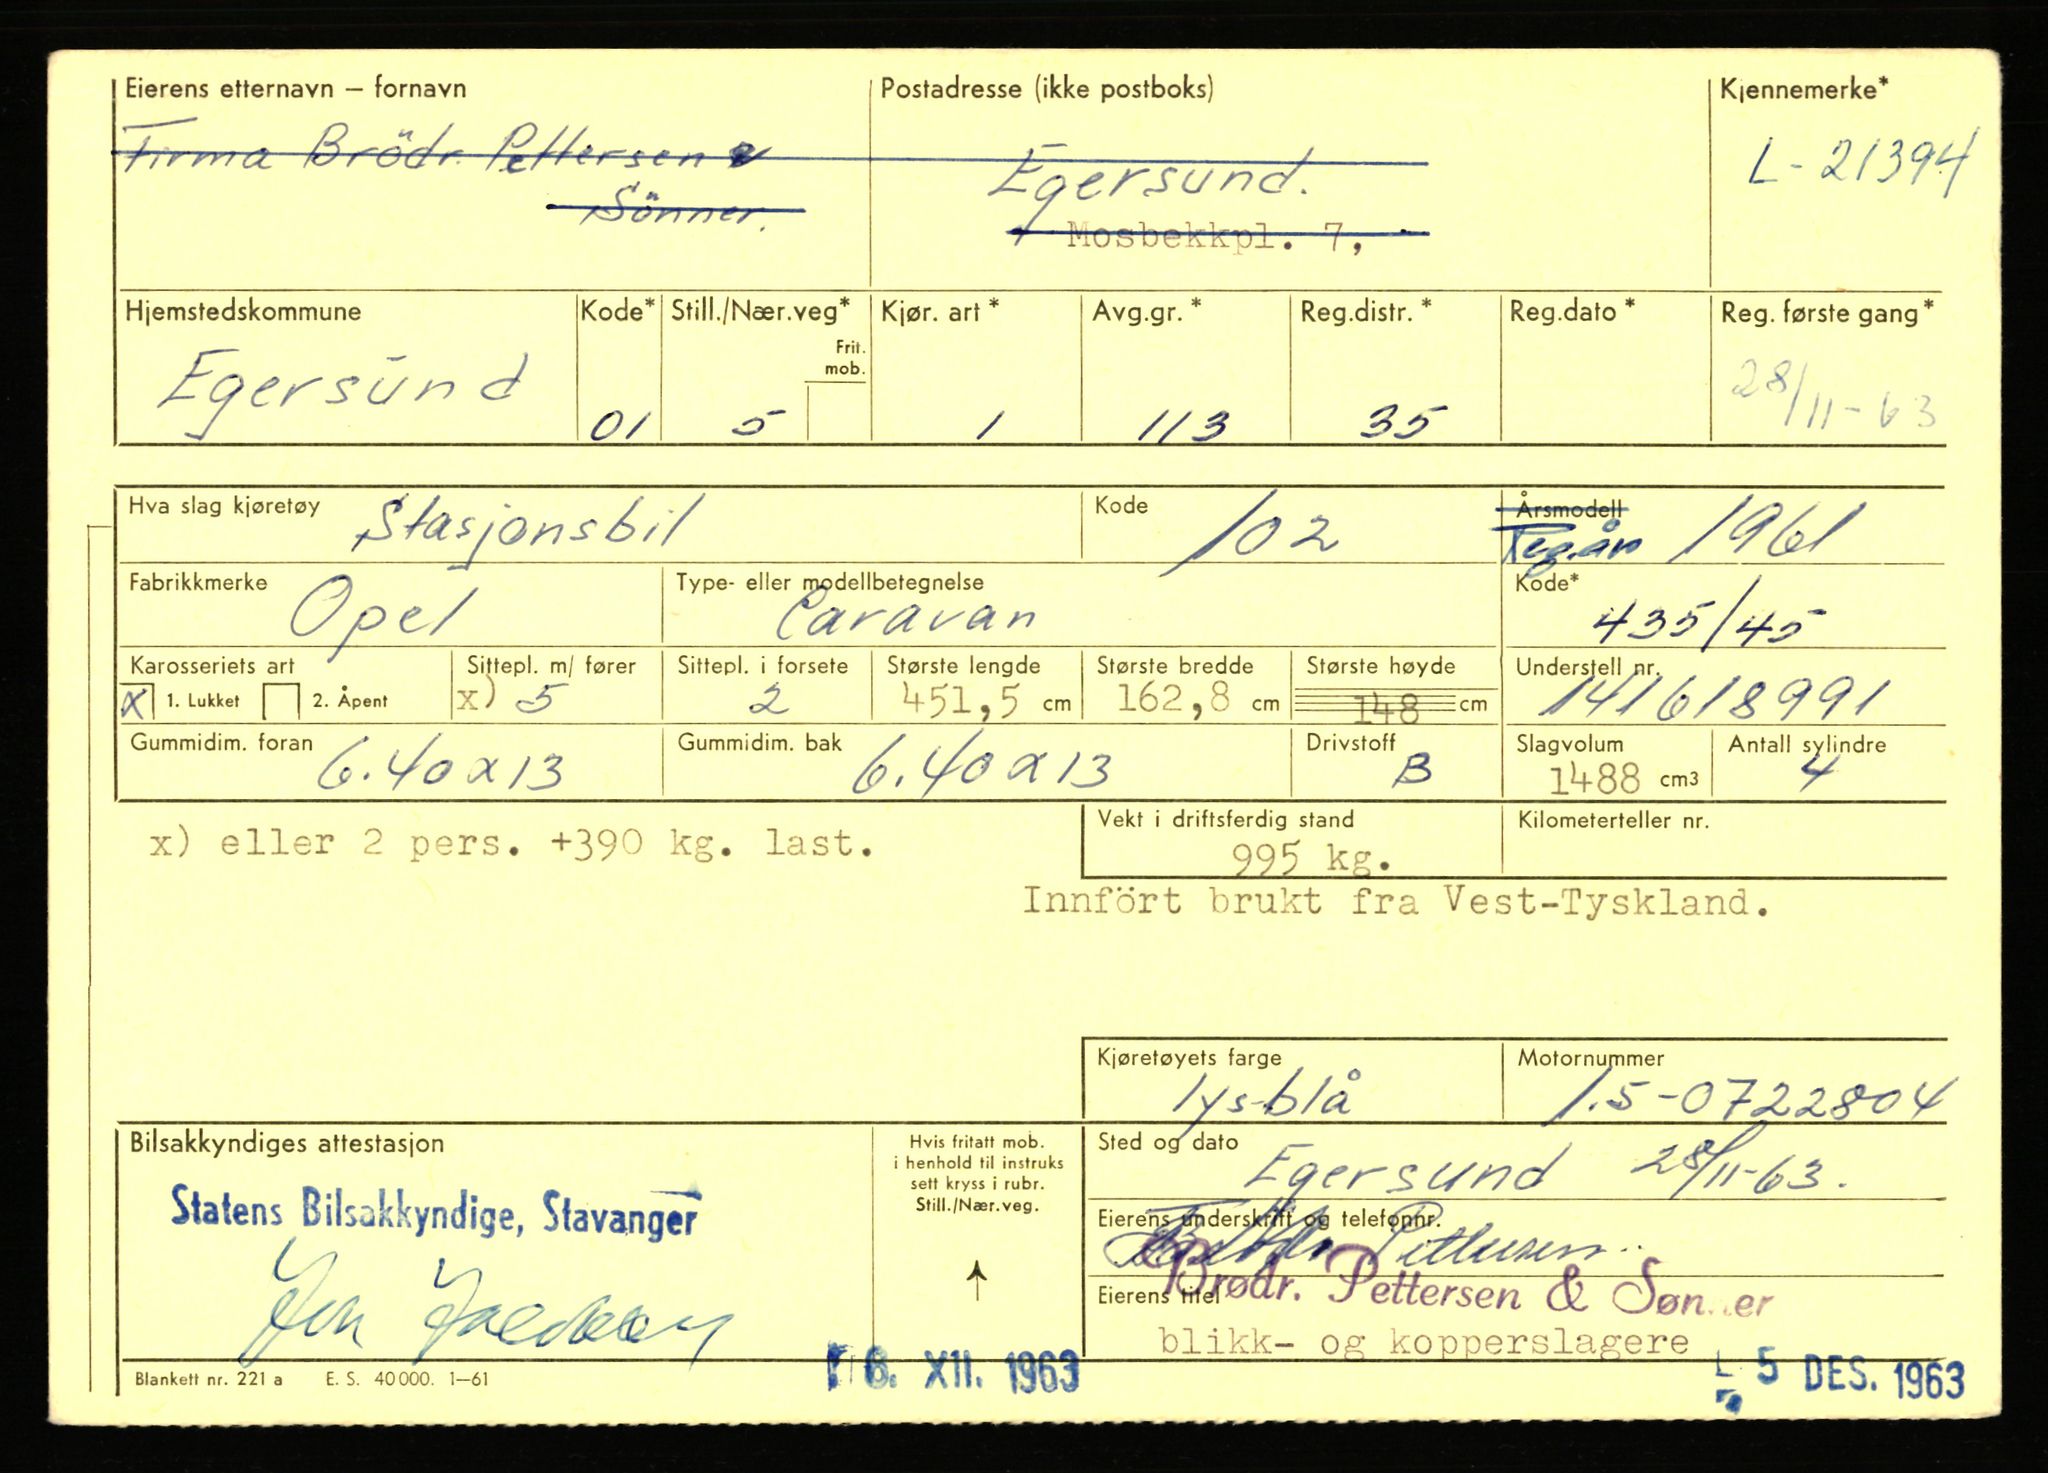 Eierens etternavn – fornavn
Postadresse (ikke postboks)
Kjennemerke*
Firma Brödr. Pettersen &
Sönner.
Egersund.
Mosbekkpl. 7,
L-21394
Hjemstedskommune
Kode*
Still./Nær.veg*
Frit. mob.
Kjør. art *
Avg.gr. *
Reg.distr. *
Reg.dato *
Reg. første gang*
Egersund
01
5
1
113
35
28/11-63
Hva slag kjøretøy
Stasjonsbil
Kode
102
Årsmodell
Reg.år 1961
Fabrikkmerke
Opel
Type- eller modellbetegnelse
Caravan
Kode*
435/45
Karosseriets art
X 1. Lukket 2. Åpent
Sittepl. m/ fører
x) 5
Sittepl. i forsete
2
Største lengde
451,5 cm
Største bredde
162,8 cm
Største høyde
148 cm
Understell nr.
141618991
Gummidim. foran
6.40x13
Gummidim. bak
6.40x13
Drivstoff
B
Slagvolum
1488 cm3
Antall sylindre
4
x) eller 2 pers. +390 kg. last.
Vekt i driftsferdig stand
995 kg.
Kilometerteller nr.
Innfört brukt fra Vest-Tyskland.
Kjøretøyets farge
lys-blå
Motornummer
1.5-0722804
Bilsakkyndiges attestasjon
Statens Bilsakkyndige, Stavanger
Hvis fritatt mob.
i henhold til instruks
sett kryss i rubr.
Still./Nær.veg.
Sted og dato
Egersund 28/11-63.
Eierens underskrift og telefonnr.
Pettersen
Eierens titel
Brødr. Pettersen & Sønner
blikk- og kopperslagere
Blankett nr. 221 a E. S. 40 000. 1—61
6. XII. 1963
L 5 DES. 1963